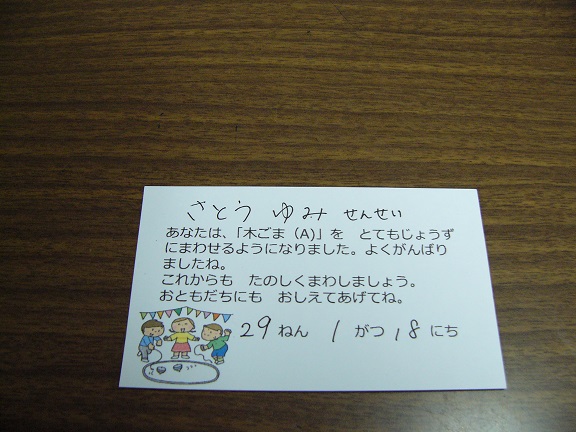 さとう ゆみ せんせい
あなたは、「木ごま（A）」を とてもじょうず
にまわせるようになりました。よくがんばり
ましたね。
これからも たのしくまわしましょう。
おともだちにも おしえてあげてね。
29 ねん 1 がつ 18 にち